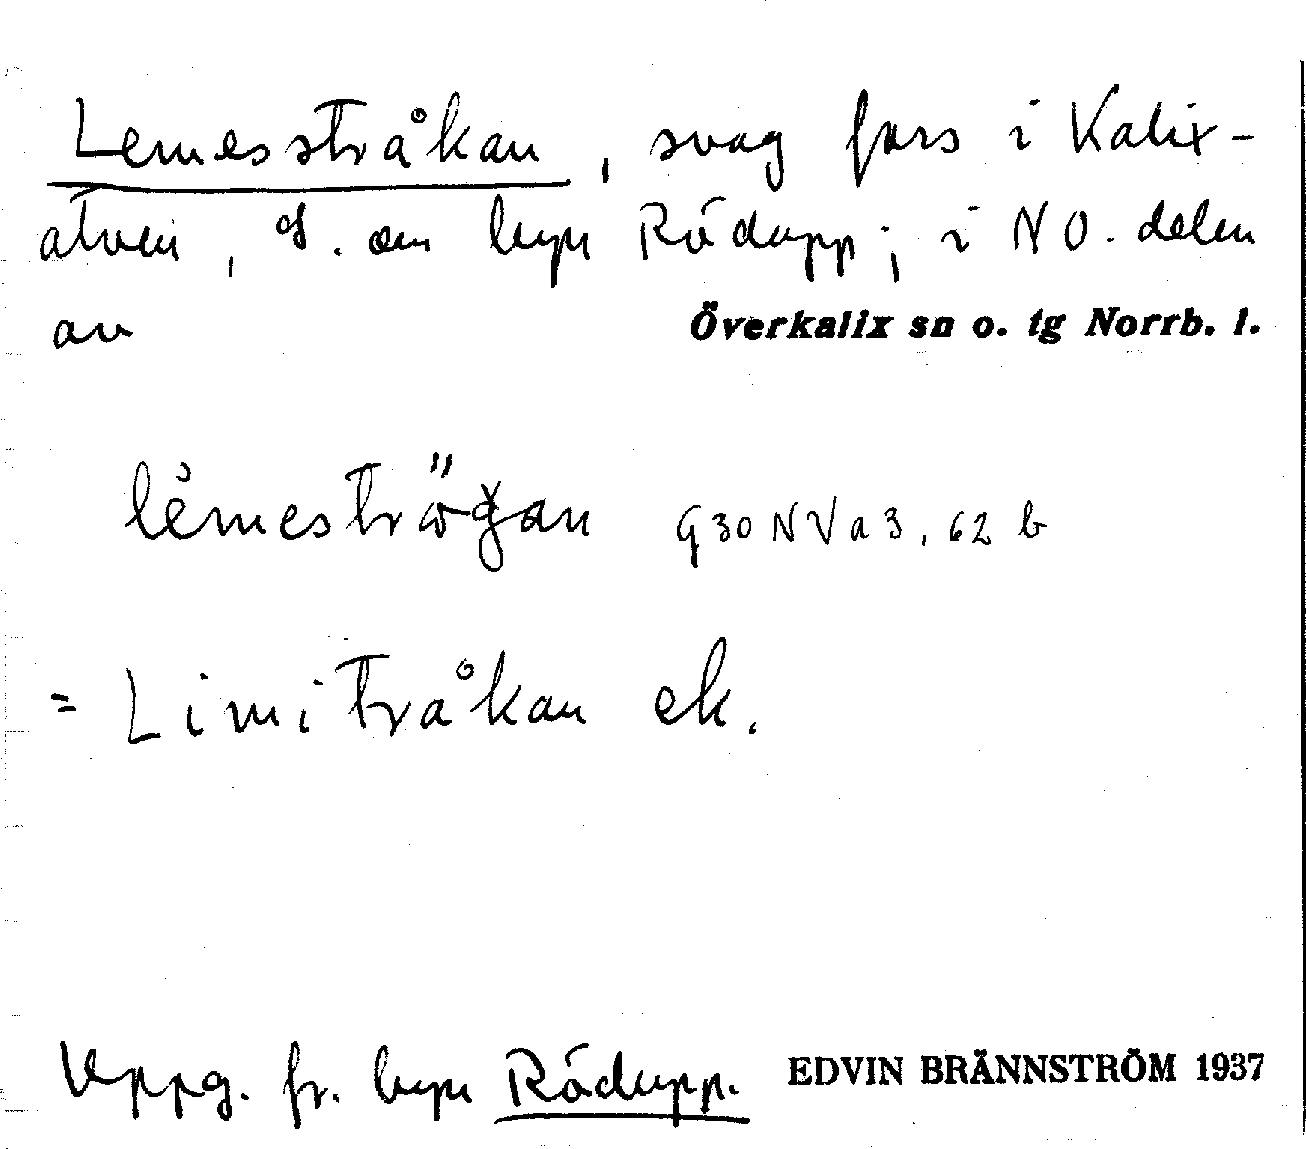 Lemesstråkan, svag fors i Kalix-
älven, S. om byn Rödupp; i NO. delen
av Överkalix sn o. tg Norrb. l.
G30 NV a 3, 62 b
= Limitråkan ek.
Uppg. fr. byn Rödupp. EDVIN BRÄNNSTRÖM 1937